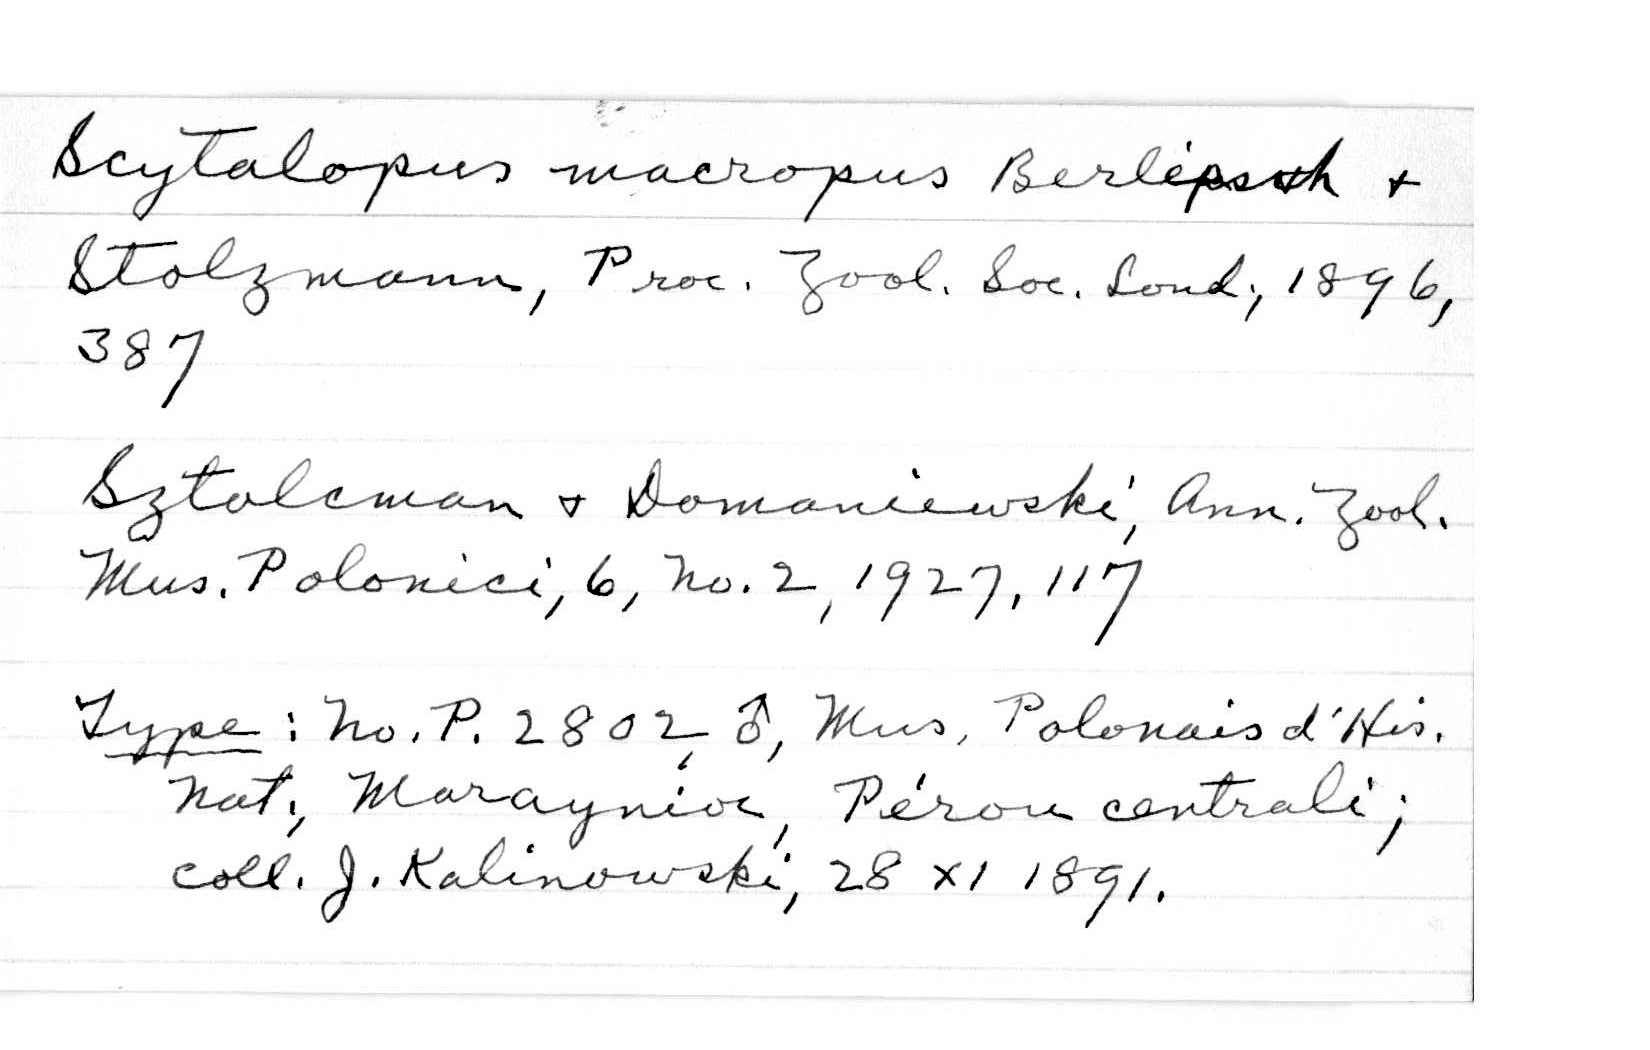 Scytalopus macropus Berlepsch +
Stolzmann, Proc. Zool. Soc. Lond., 1896,
387
Sztolcman + Domaniewski, Ann. Zool.
Mus. Polonici, 6, no. 2, 1927, 117
Type: No. P. 2802, ♂, Mus. Polonais d'His.
Nat., Maraynioc, Pérou centrali;
coll. J. Kalinowski, 28 XI 1891.